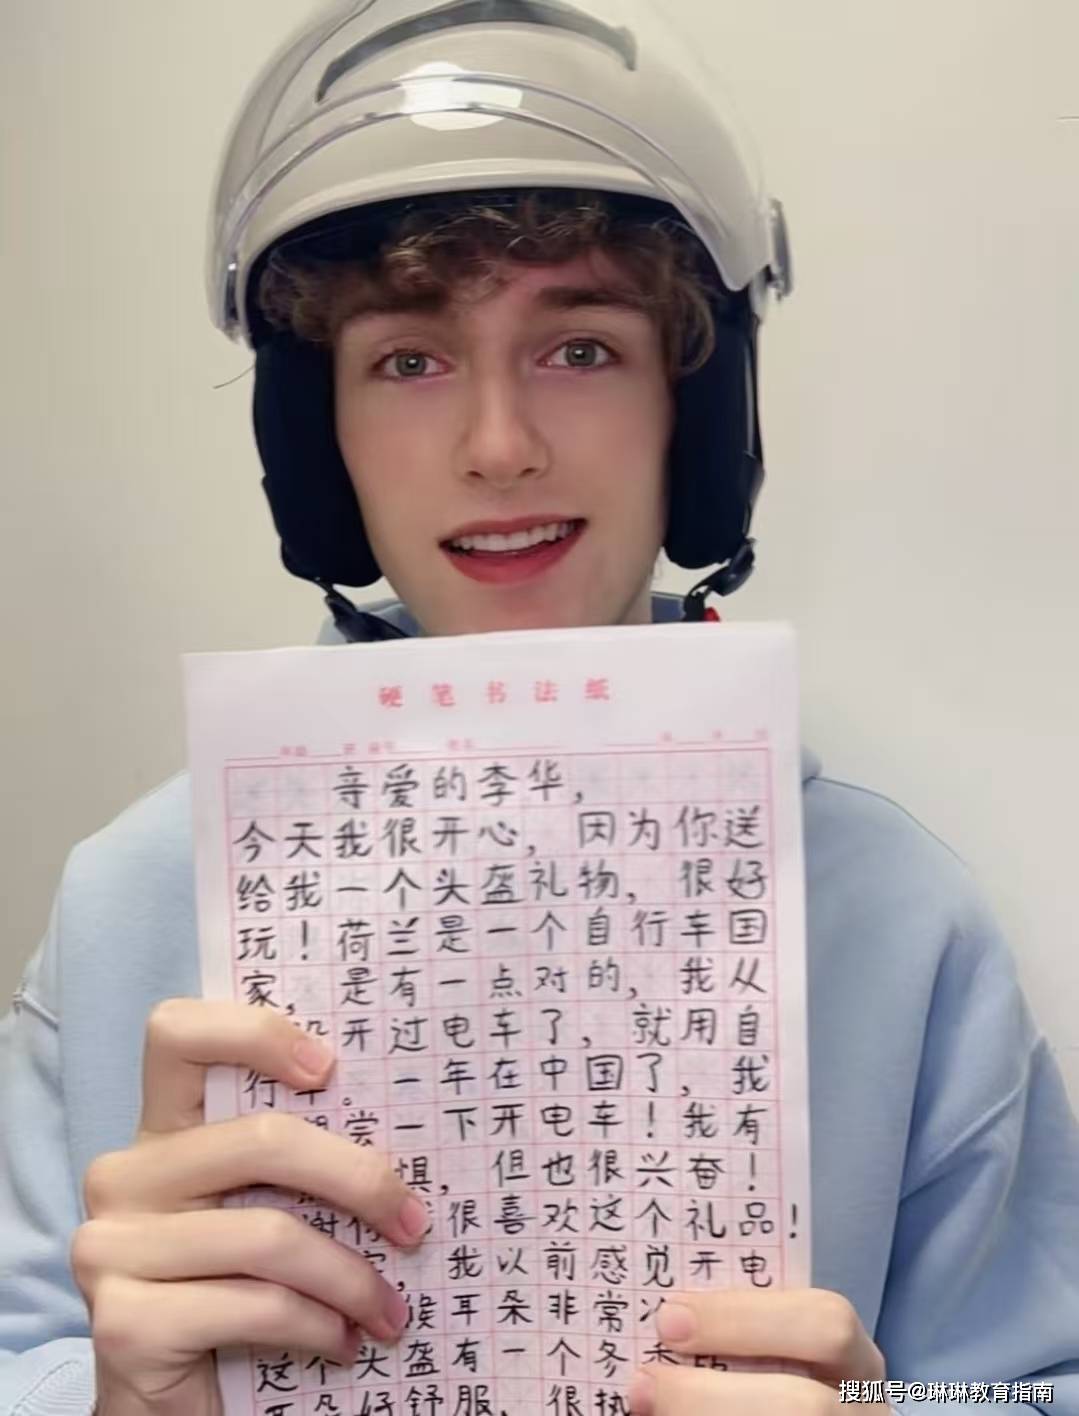 硬笔书法纸
亲爱的李华，
今天我很开心，因为你送
给我一个头盔礼物，很好
玩！荷兰是一个自行车国
家，是有一点对的，我从
开过电车了，就用自
行车。一年在中国了，我
想尝一下开电车！我有
惧，但也很兴奋！
谢你我很喜欢这个礼品！
我以前感觉开电
候耳朵非常冷
这个头盔有一个冬季
耳朵好舒服，很热
搜狐号@琳琳教育指南